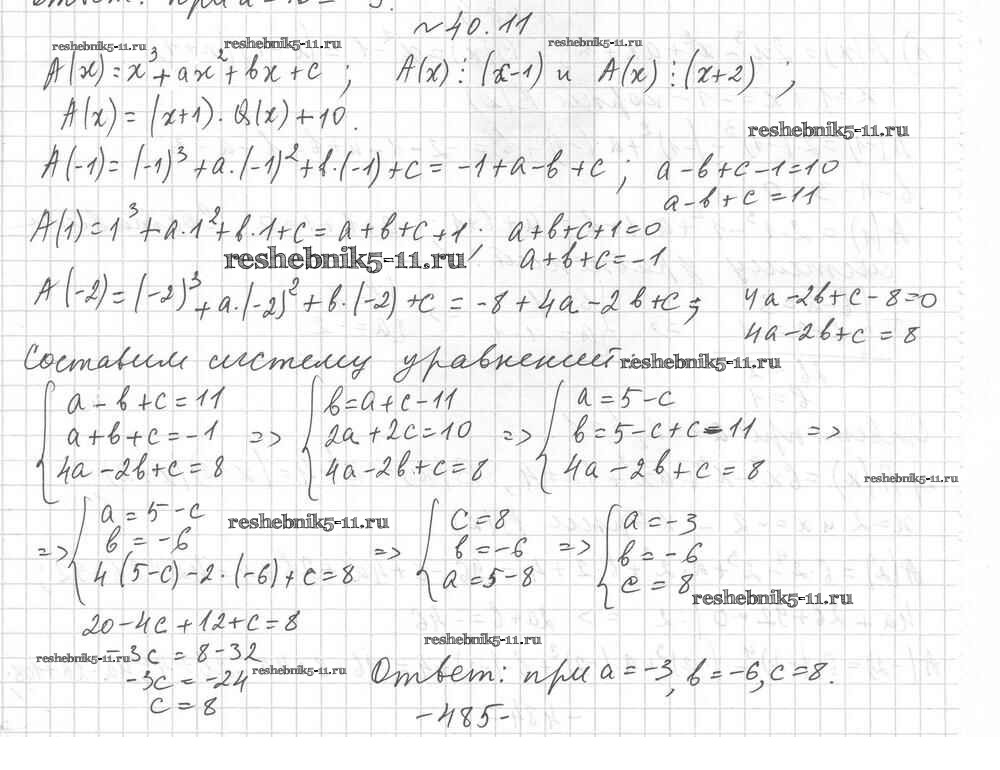 Ответ: при a
№40.11
reshebnik5-11.ru reshebnik5-11.ru reshebnik5-11.ru
A(x)=x³+ax²+bx+c; A(x)⋮(x-1) и A(x)⋮(x+2);
A(x)=(x+1)·Q(x)+10.
reshebnik5-11.ru
A(-1)=(-1)³+a·(-1)²+b·(-1)+c=-1+a-b+c; a-b+c-1=10
a-b+c=11
A(1)=1³+a·1²+b·1+c=a+b+c+1; a+b+c+1=0
reshebnik5-11.ru a+b+c=-1
A(-2)=(-2)³+a·(-2)²+b·(-2)+c=-8+4a-2b+c; 4a-2b+c-8=0
4a-2b+c=8
Составим систему уравнений: reshebnik5-11.ru
{ a-b+c=11 { b=a+c-11 { a=5-c
a+b+c=-1 => 2a+2c=10 => b=5-c+c-11 =>
4a-2b+c=8 4a-2b+c=8 4a-2b+c=8
reshebnik5-11.ru
{ a=5-c reshebnik5-11.ru { c=8 { a=-3
=> b=-6 => b=-6 => b=-6
4(5-c)-2·(-6)+c=8 a=5-8 c=8
reshebnik5-11.ru
20-4c+12+c=8
reshebnik5-11.ru
reshebnik5-11.ru -3c=8-32
-3c=-24 reshebnik5-11.ru Ответ: при a=-3, b=-6, c=8.
c=8
-485-